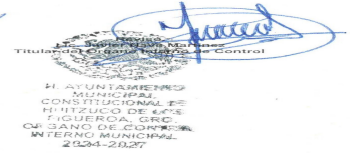 Revisó
Lic. Javier Nava Martínez
Titular del Órgano Interno de Control
H. AYUNTAMIENTO
MUNICIPAL
CONSTITUCIONAL DE
HUITZUCO DE LOS
FIGUEROA, GRO.
ORGANO DE CONTROL
INTERNO MUNICIPAL
2024-2027